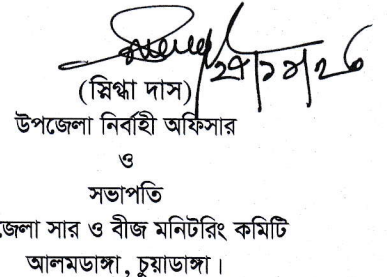 (স্নিগ্ধা দাস)
উপজেলা নির্বাহী অফিসার
ও
সভাপতি
জেলা সার ও বীজ মনিটরিং কমিটি
আলমডাঙ্গা, চুয়াডাঙ্গা।